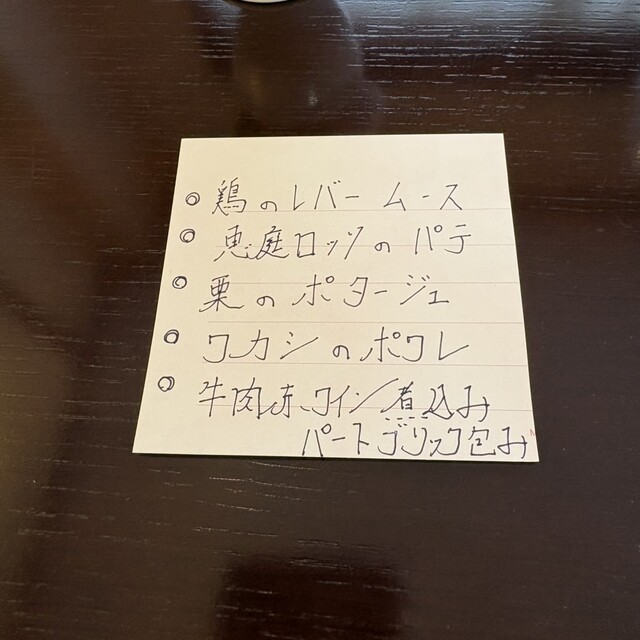 ◎ 鶏のレバームース
◎ 恵庭ロッソのパテ
◎ 栗のポタージュ
◎ ワカシのポワレ
◎ 牛肉赤ワイン煮込み
パートブリック包み